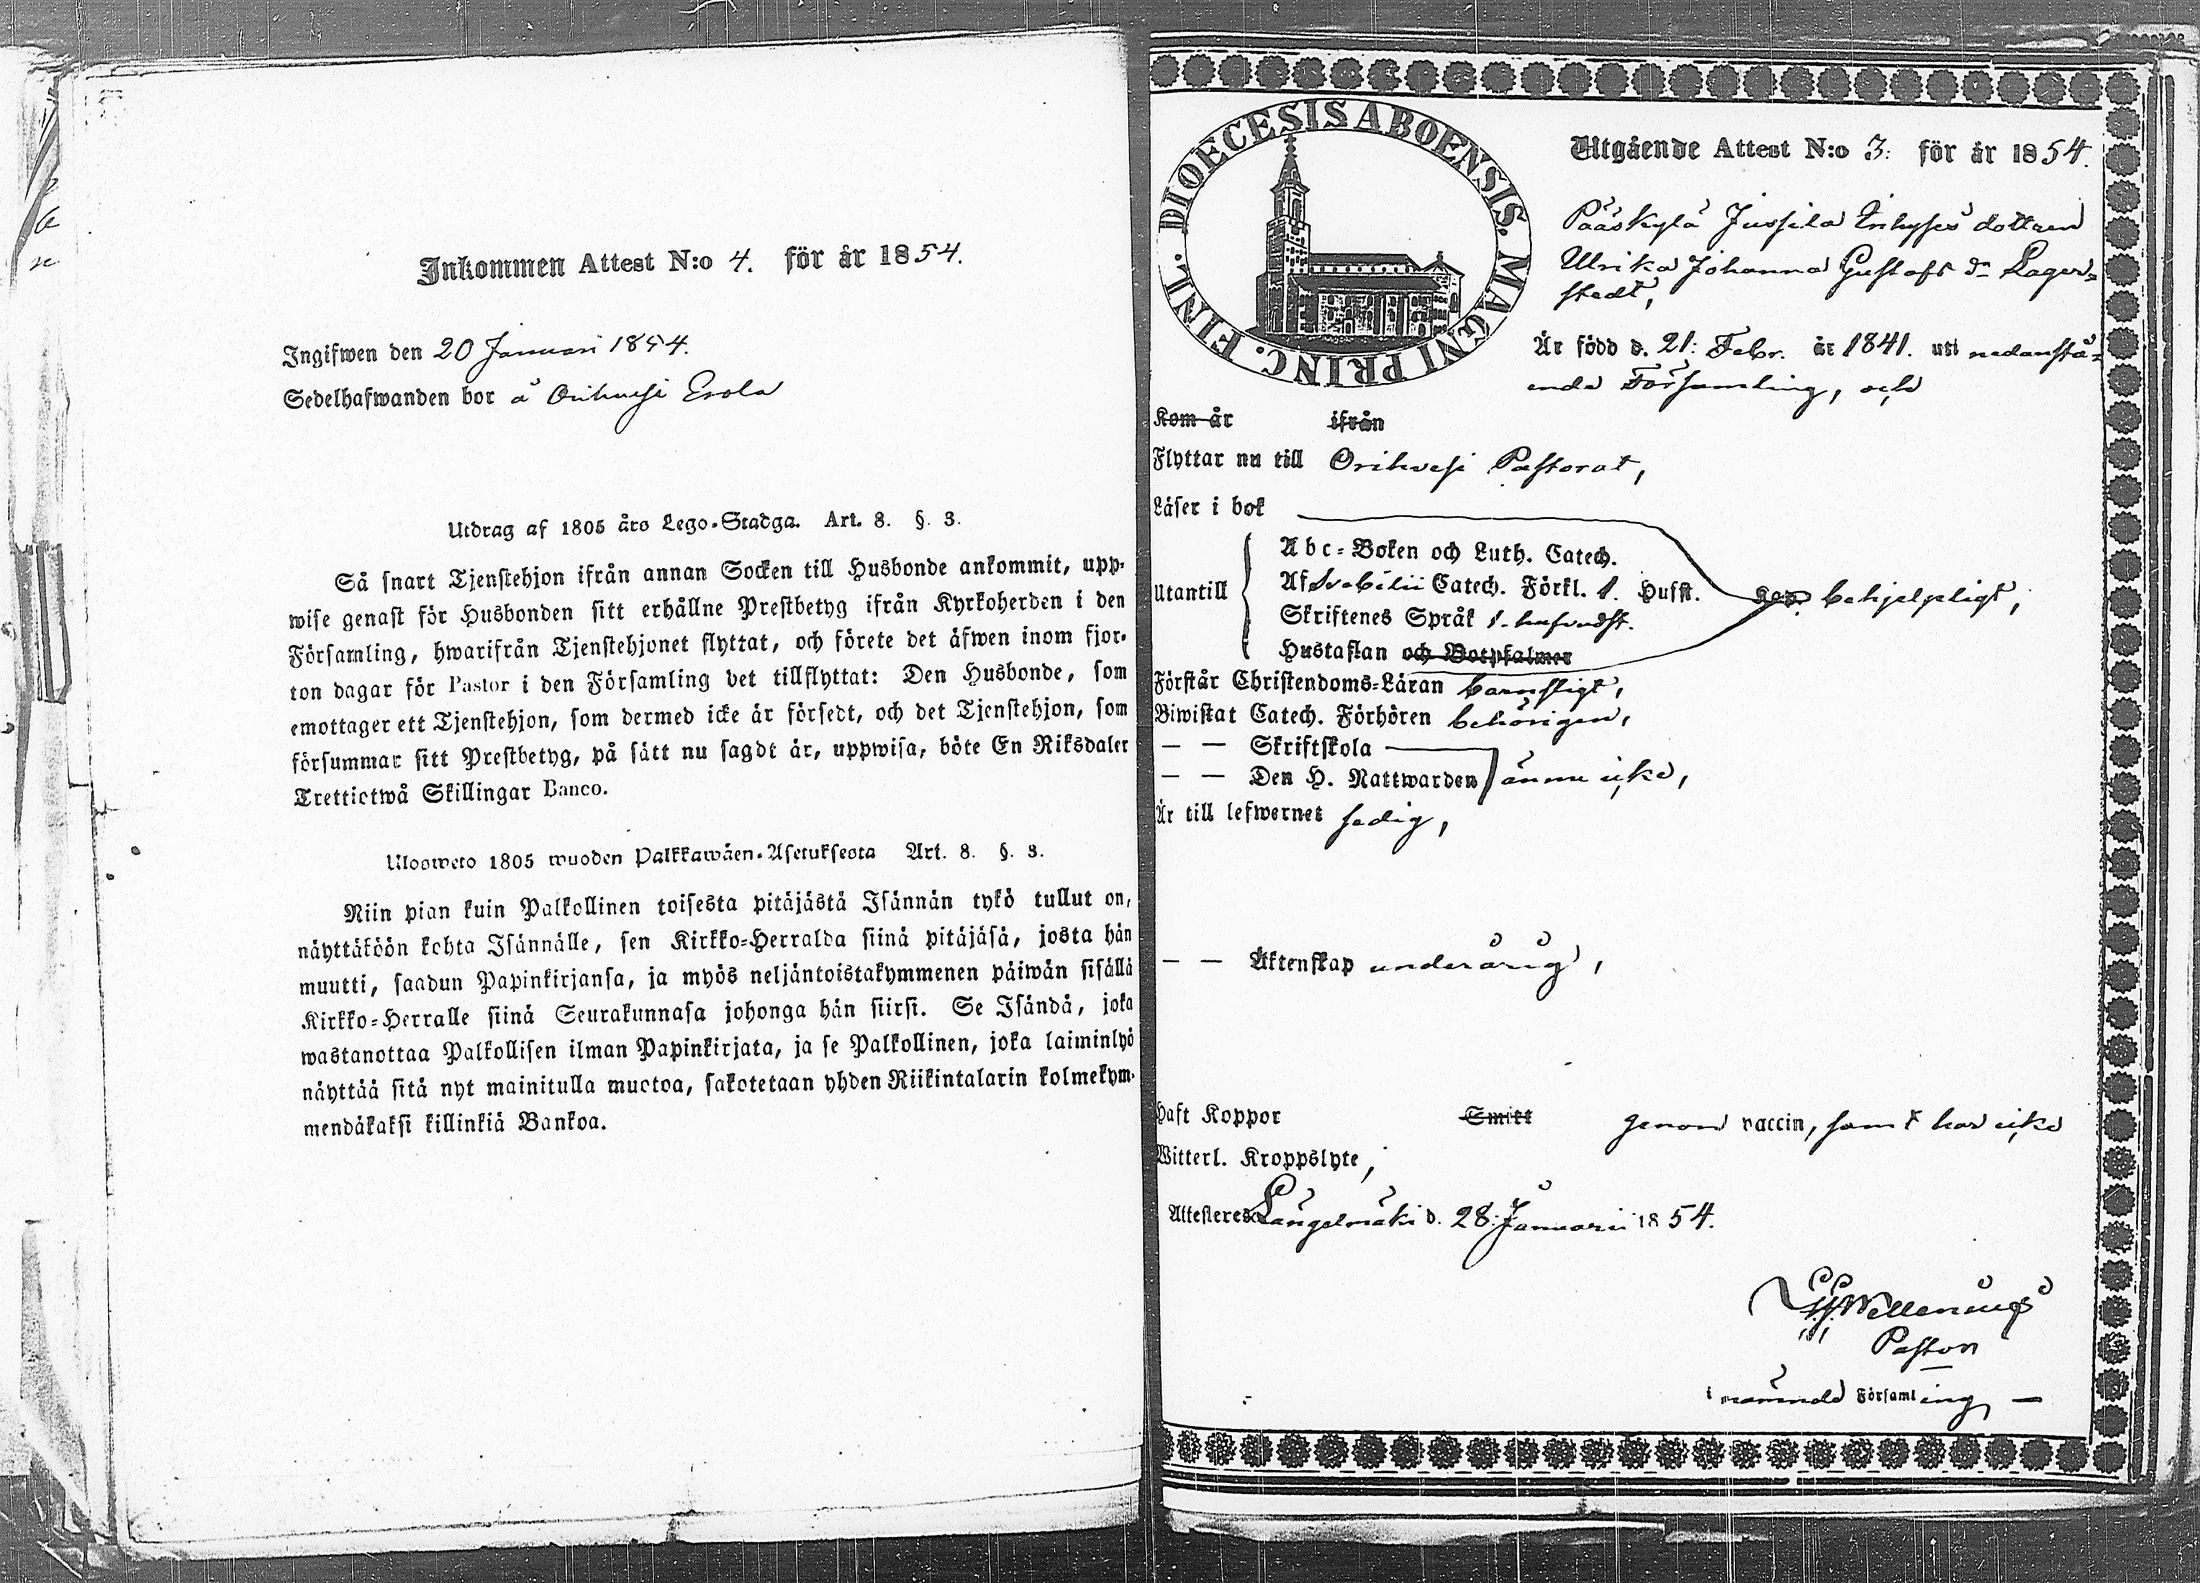 Inkommen Attest N:o 4. för år 1854.
Ingifwen den 20 Januari 1854.
Sedelhafwanden bor å Orihvesi Erola
Utdrag af 1805 års Lego-Stadga. Art. 8. §. 3.
Så snart Tjenstehjon ifrån annan Socken till Husbonde ankommit, upp-
wise genast för Husbonden sitt erhållne Prestbetyg ifrån Kyrkoherden i den
Församling, hwarifrån Tjenstehjonet flyttat, och förete det äfwen inom fjor-
ton dagar för Pastor i den Församling det tillflyttat: Den Husbonde, som
emottager ett Tjenstehjon, som dermed icke är försedt, och det Tjenstehjon, som
försummar sitt Prestbetyg, på sätt nu sagdt är, uppwisa, böte En Riksdaler
Trettiotwå Skillingar Banco.
Ulosweto 1805 wuoden Palkkawäen-Asetuksesta Art. 8. §. 3.
Niin pian kuin Palkollinen toisesta pitäjästä Isännän tykö tullut on,
näyttäköön kohta Isännälle, sen Kirkko-Herralda siinä pitäjäsä, josta hän
muutti, saadun Papinkirjansa, ja myös neljäntoistakymmenen päiwän sisällä
Kirkko-Herralle siinä Seurakunnasa johonga hän siirsi. Se Isändä, joka
wastanottaa Palkollisen ilman Papinkirjata, ja se Palkollinen, joka laiminlyö
näyttää sitä nyt mainitulla muotoa, sakotetaan yhden Riikintalarin kolmekym-
mendäkaksi killinkiä Bankoa.
DIOECESIS ABOENSIS. MAGNI PRINC. FINL.
Utgående Attest N:o 3: för år 1854.
Pääskylä Jussila dottren
Ulrika Johanna Gustafs dr Lager-
stedt,
Är född d. 21: Febr. år 1841. uti nedanstå-
ende Församling, och
Kom år ifrån
Flyttar nu till Orihvesi Pastorat,
Läser i bok
Abc-Boken och Luth. Catech.
Utantill Af Svebilii Catech. Förkl. 1. Hufst. Kap. behjelpligt,
Skriftenes Språk 1. hufvudst.
Hustaflan och Botpsalmer
Förstår Christendoms-Läran barnsligt,
Biwistat Catech. Förhören behörigen,
— — Skriftskola
— — Den H. Nattwarden ännu icke,
Är till lefwernet sedig,
— — Äktenskap underårig,
Haft Koppor Smitt genom vaccin, samt har icke
Witterl. Kroppslyte,
Attesteres Längelmäki d. 28: Januarii 1854.
Pastor
i nämnde Församling —